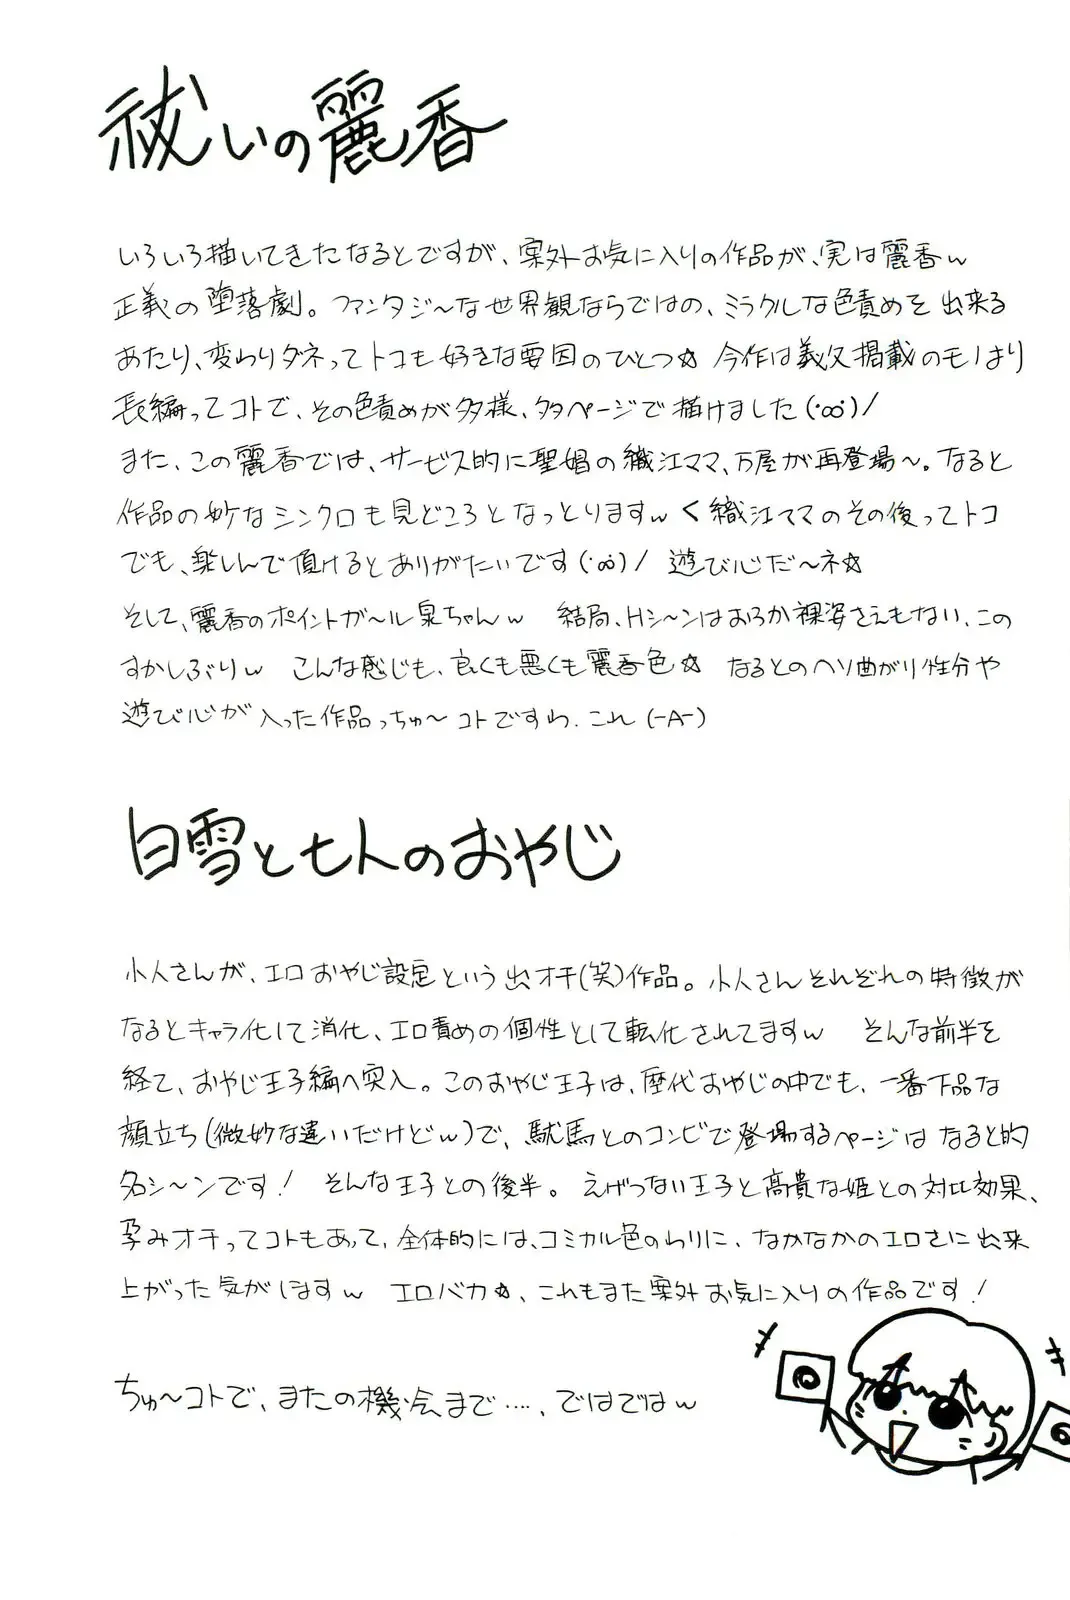 祓いの麗香
いろいろ描いてきたなるとですが、案外お気に入りの作品が、実は麗香w
正義の堕落劇。ファンタジ〜な世界観ならではの、ミラクルな色責めを出来る
あたり、変わりダネってトコも好きな要因のひとつ☆ 今作は義父掲載のモノより
長編ってコトで、その色責めが多様、多ページで描けました(・∞・)/
また、この麗香では、サービス的に聖娼の織江ママ、万屋が再登場〜。なると
作品の妙なシンクロも見どころとなっとりますw く織江ママのその後ってトコ
でも、楽しんで頂けるとありがたいです(・∞・)/ 遊び心だ〜ネ☆
そして、麗香のポイントガ〜ル泉ちゃんw 結局、Hシ〜ンはおろか裸姿さえもない、この
すかしぶりw こんな感じも、良くも悪くも麗香色☆ なるとのヘソ曲がり性分や
遊び心が入った作品っちゅ〜コトですわ、これ(-A-)
白雪と七人のおやじ
小人さんが、エロおやじ設定という出オチ(笑)作品。小人さんそれぞれの特徴が
なるとキャラ化して消化、エロ責めの個性として転化されてますw そんな前半を
経て、おやじ王子編へ突入。このおやじ王子は、歴代おやじの中でも、一番下品な
顔立ち(微妙な違いだけどw)で、駄馬とのコンビで登場するページはなると的
名シ〜ンです! そんな王子との後半。えげつない王子と高貴な姫との対比効果、
孕みオチってコトもあって、全体的には、コミカル色のわりに、なかなかのエロさに出来
上がった気がしますw エロバカ☆、これもまた案外お気に入りの作品です!
ちゅ〜コトで、またの機会まで‥‥、ではではw